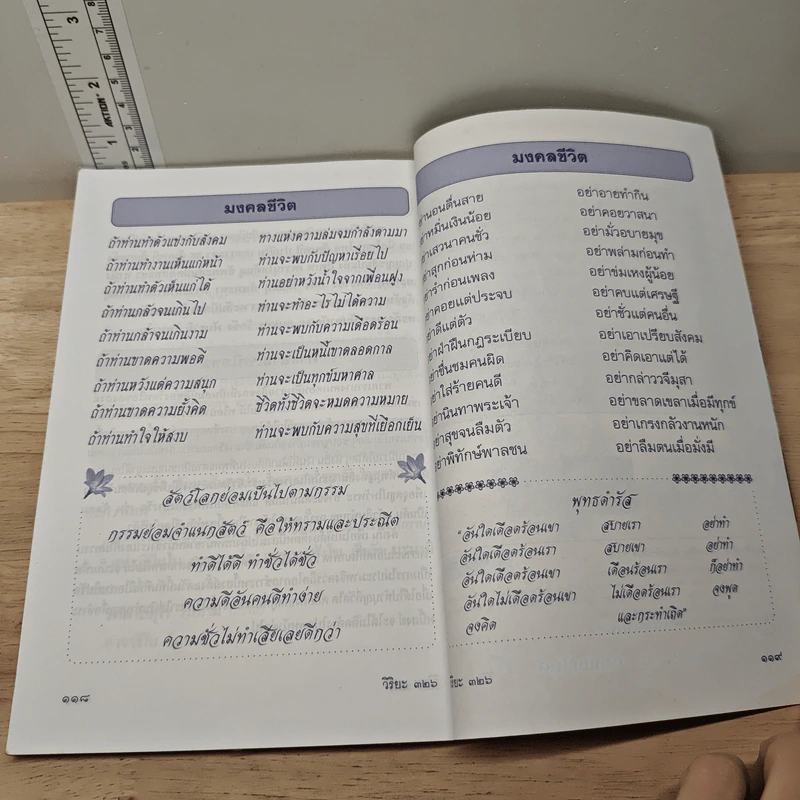 AKTION
มงคลชีวิต
ถ้าท่านทำตัวแข่งกับสังคม ทางแห่งความล่มจมกำลังตามมา
ถ้าท่านทำงานเห็นแก่หน้า ท่านจะพบกับปัญหาเรื่อยไป
ถ้าท่านทำตัวเห็นแก่ได้ ท่านอย่าหวังน้ำใจจากเพื่อนฝูง
ถ้าท่านกลัวจนเกินไป ท่านจะทำอะไรไม่ได้ความ
ถ้าท่านกล้าจนเกินงาม ท่านจะพบกับความเดือดร้อน
ถ้าท่านขาดความพอดี ท่านจะเป็นหนี้เขาตลอดกาล
ถ้าท่านหวังแต่ความสนุก ท่านจะเป็นทุกข์มหาศาล
ถ้าท่านขาดความยั้งคิด ชีวิตทั้งชีวิตจะหมดความหมาย
ถ้าท่านทำใจให้สงบ ท่านจะพบกับความสุขที่เยือกเย็น
สัตว์โลกย่อมเป็นไปตามกรรม
กรรมย่อมจำแนกสัตว์ คือให้ทรามและประณีต
ทำดีได้ดี ทำชั่วได้ชั่ว
ความดีอันคนดีทำง่าย
ความชั่วไม่ทำเสียเลยดีกว่า
วิริยะ ๓๒๖
๑๑๘
มงคลชีวิต
นอนตื่นสาย อย่าอายทำกิน
หมิ่นเงินน้อย อย่าคอยวาสนา
เสวนาคนชั่ว อย่ามั่วอบายมุข
สุกก่อนห่าม อย่าพล่ามก่อนทำ
รำก่อนเพลง อย่าข่มเหงผู้น้อย
อย่าคอยแต่ประจบ อย่าคบแต่เศรษฐี
อย่าดีแต่ตัว อย่าชั่วแต่คนอื่น
อย่าฝ่าฝืนกฎระเบียบ อย่าเอาเปรียบสังคม
อย่าชื่นชมคนผิด อย่าคิดเอาแต่ได้
อย่าใส่ร้ายคนดี อย่ากล่าววจีมุสา
อย่านินทาพระเจ้า อย่าขลาดเขลาเมื่อมีทุกข์
อย่าสุขจนลืมตัว อย่าเกรงกลัวงานหนัก
อย่าพิทักษ์พาลชน อย่าลืมตนเมื่อมั่งมี
พุทธดำรัส
"อันใดเดือดร้อนเขา สบายเรา อย่าทำ
อันใดเดือดร้อนเรา สบายเขา อย่าทำ
อันใดเดือดร้อนเขา เดือนร้อนเรา ก็อย่าทำ
อันใดไม่เดือดร้อนเขา ไม่เดือดร้อนเรา จงพูด
จงคิด และกระทำเถิด"
ยะ ๓๒๖
๑๑๙